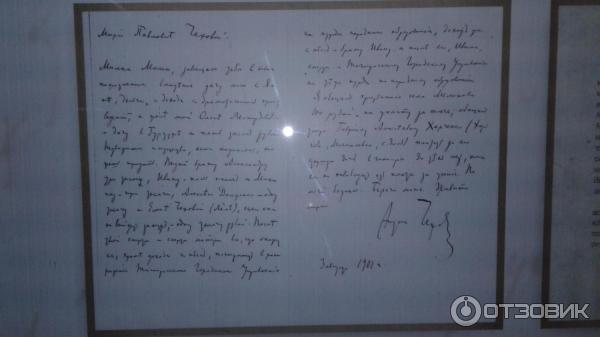 Марии Павловне Чеховой.
Милая Маша, завещаю тебе в твое
пожизненное владение дачу мою в Ял-
те, деньги и доход с драматических произ-
ведений, а жене моей Ольге Леонардовне
— дачу в Гурзуфе и пять тысяч рублей.
Недвижимое имущество, если пожелаешь, мо-
жешь продать. Выдай брату Александру
три тысячи, Ивану — пять тысяч и Миха-
илу — три тысячи, Алексею Долженко — одну
тысячу и Елене Чеховой (Леле), если она
не выйдет замуж, — одну тысячу рублей. После
твоей смерти и смерти матери все, что окажет-
ся, кроме дохода с пьес, поступает в распо-
ряжение Таганрогского городского управления
на нужды народного образования, доход же
с пьес — брату Ивану, а после его, Ивана,
смерти — Таганрогскому городскому управлению
на те же нужды по народному образованию.
Я обещал крестьянам села Мелихова
100 рублей — на уплату за шоссе; обещал
также Гавриилу Алексеевичу Харченко (Харь-
ков, Москалевка, с. дом) платить за его
старшую дочь в гимназию до тех пор, пока
ее не освободят от платы за учение. По-
могай бедным. Береги мать. Живите
мирно.
Антон Чехов
3 август 1901 г.
ОТЗОВИК